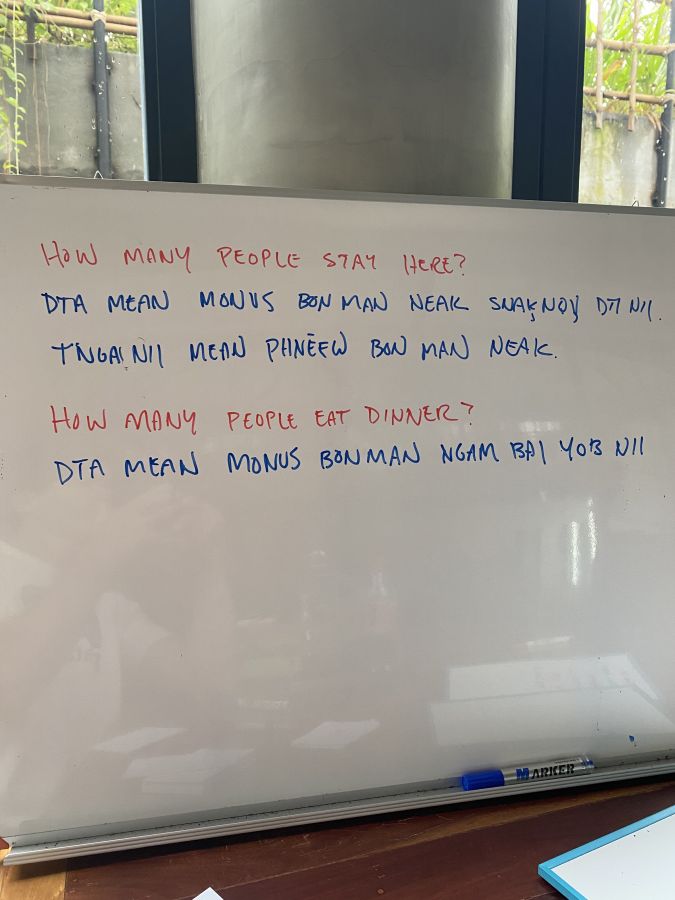 HOW MANY PEOPLE STAY HERE?
DTA MEAN MONUS BON MAN NEAK SNAK NOV DTI NII.
TNGAI NII MEAN PHNĒĒW BON MAN NEAK.
HOW MANY PEOPLE EAT DINNER?
DTA MEAN MONUS BON MAN NGAM BAI YOB NII
MARKER